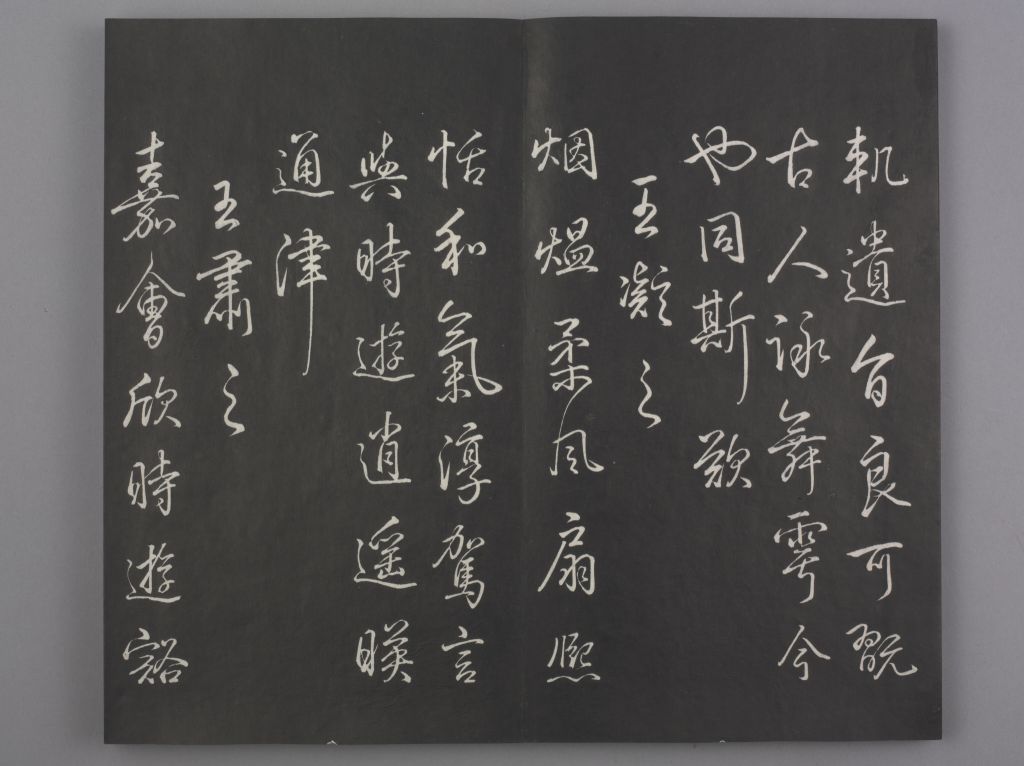 軌遺音良可翫
古人詠舞雩今
也同斯歎
王凝之
烟熅柔風扇熙
怡和氣淳駕言
興時遊逍遥暎
通津
王肅之
嘉會欣時遊豁